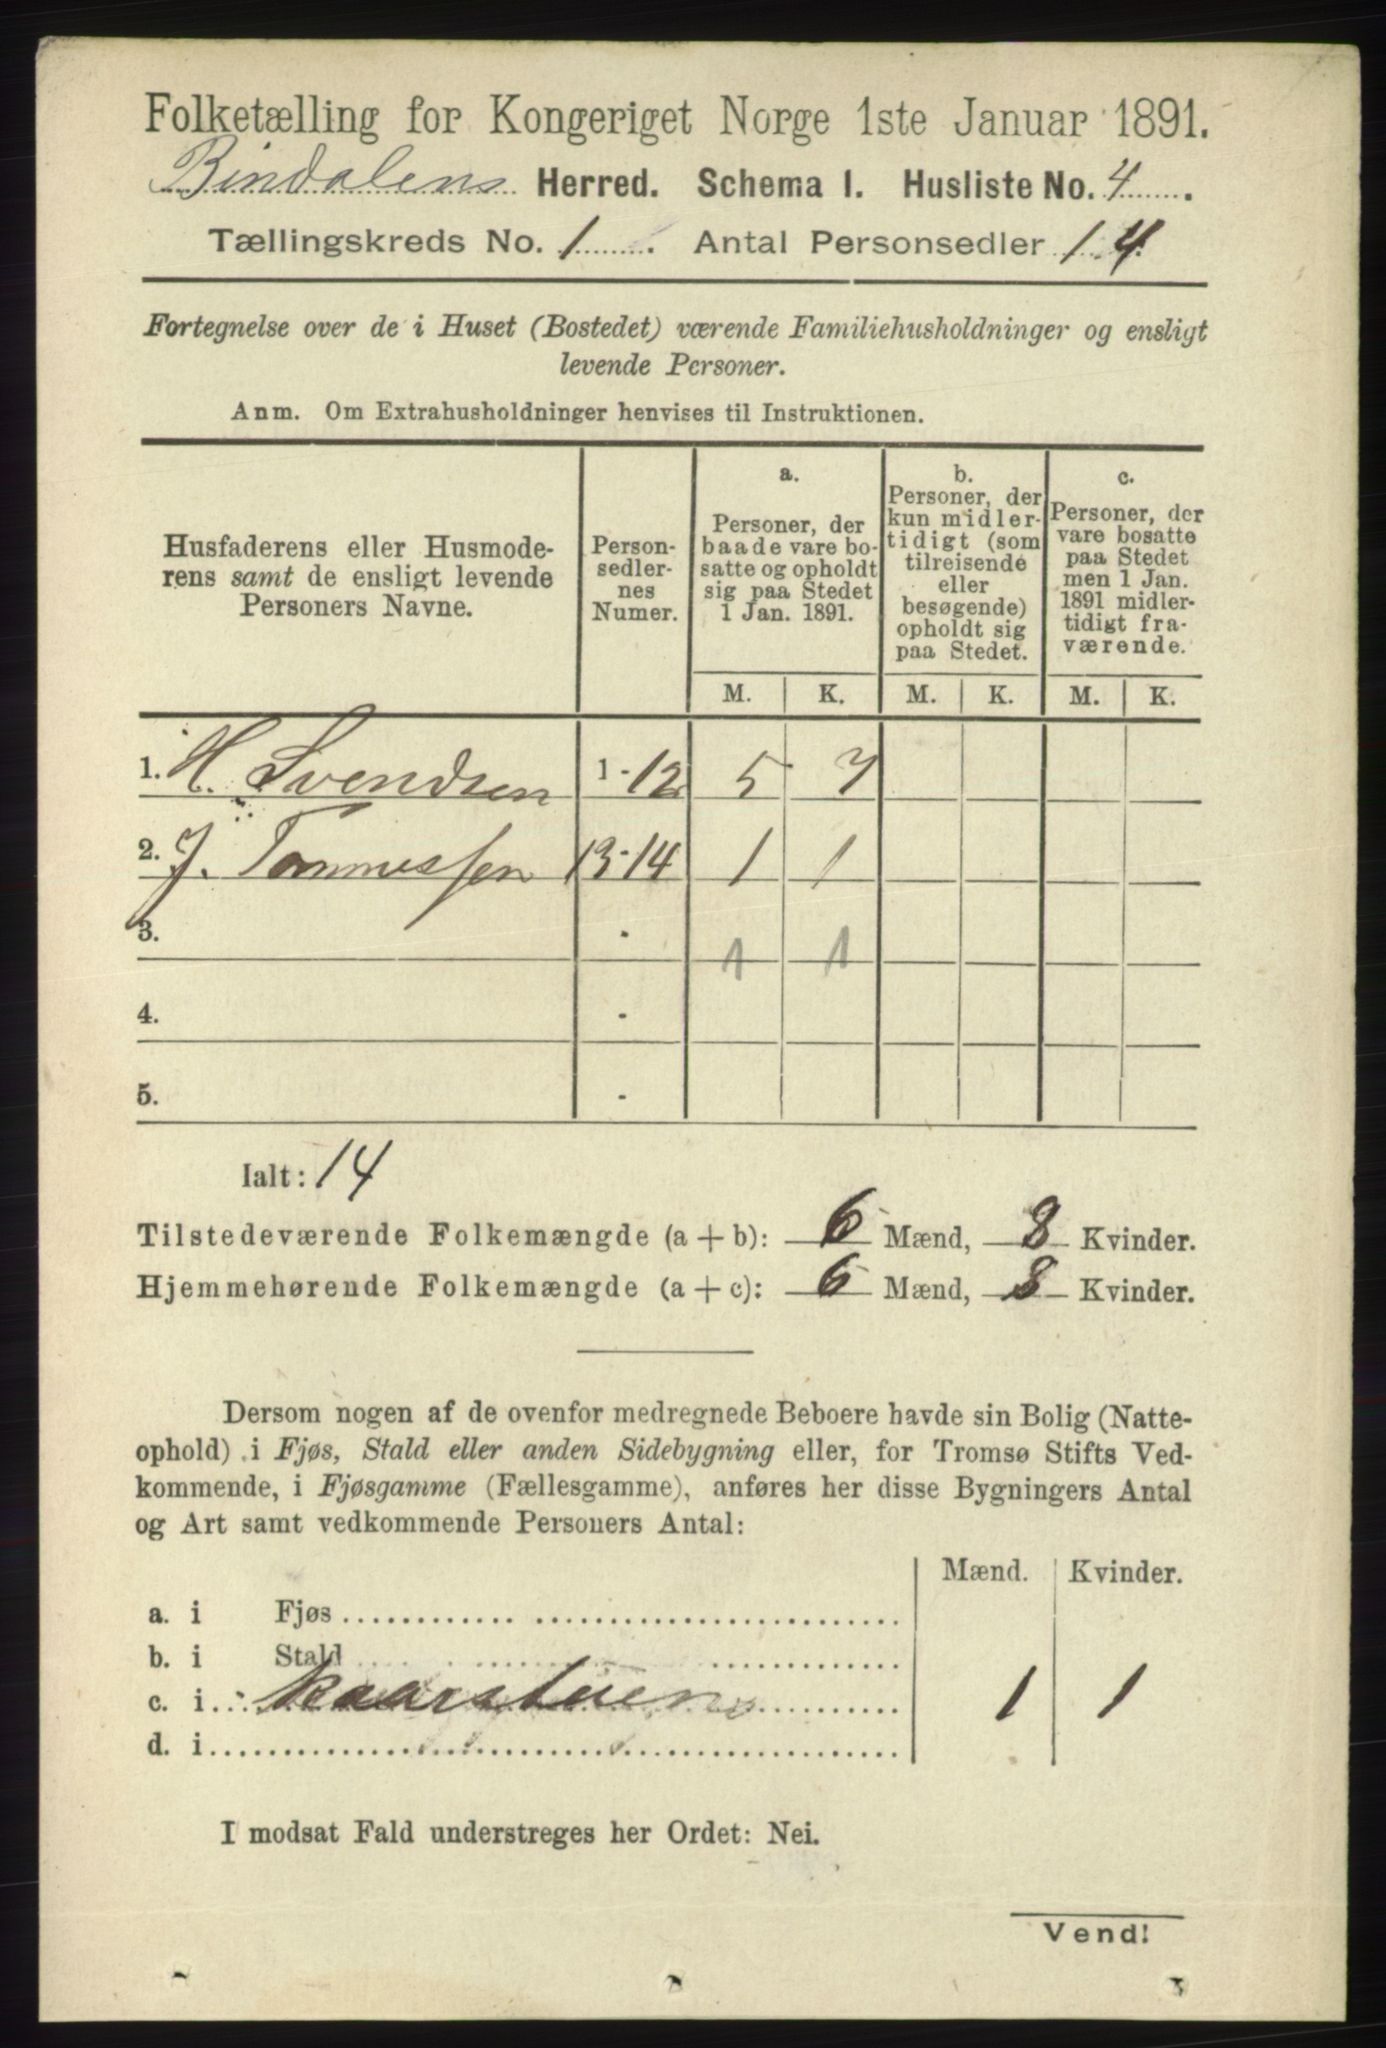 Folketælling for Kongeriget Norge 1ste Januar 1891.
Bindalens Herred. Schema I. Husliste No. 4.
Tællingskreds No. 1. Antal Personsedler 14.
Fortegnelse over de i Huset (Bostedet) værende Familiehusholdninger og ensligt
levende Personer.
Anm. Om Extrahusholdninger henvises til Instruktionen.
Husfaderens eller Husmode-
rens samt de ensligt levende
Personers Navne.
Person-
sedler-
nes
Numer.
a.
Personer, der
baade vare bo-
satte og opholdt
sig paa Stedet
1 Jan. 1891.
b.
Personer, der
kun midler-
tidigt (som
tilreisende
eller
besøgende)
opholdt sig
paa Stedet.
c.
Personer, der
vare bosatte
paa Stedet
men 1 Jan.
1891 midler-
tidigt fra-
værende.
M. K. M. K. M. K.
1. H. Svendsen 1-12 5 7
2. J. Tommessen 13-14 1 1
3. - 1 1
4. -
5. -
Ialt: 14
Tilstedeværende Folkemængde (a + b): 6 Mænd, 8 Kvinder.
Hjemmehørende Folkemængde (a + c): 6 Mænd, 8 Kvinder.
Dersom nogen af de ovenfor medregnede Beboere havde sin Bolig (Natte-
ophold) i Fjøs, Stald eller anden Sidebygning eller, for Tromsø Stifts Ved-
kommende, i Fjøsgamme (Fællesgamme), anføres her disse Bygningers Antal
og Art samt vedkommende Personers Antal:
Mænd. Kvinder.
a. i Fjøs
b. i Stald
c. i Kaarstuen 1 1
d. i
I modsat Fald understreges her Ordet: Nei.
Vend!